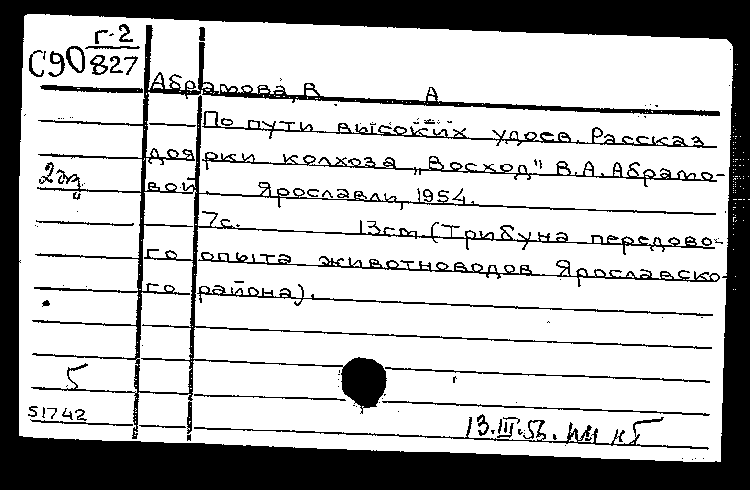 г-2
С90 827
Абрамова, В А
По пути высоких удоев. Рассказ
доярки колхоза „Восход" В.А. Абрамо-
2 эк вой. Ярославль, 1954.
7с. 13см. (Трибуна передово-
го опыта животноводов Ярославско-
го района).
5
51742
13.III.56.